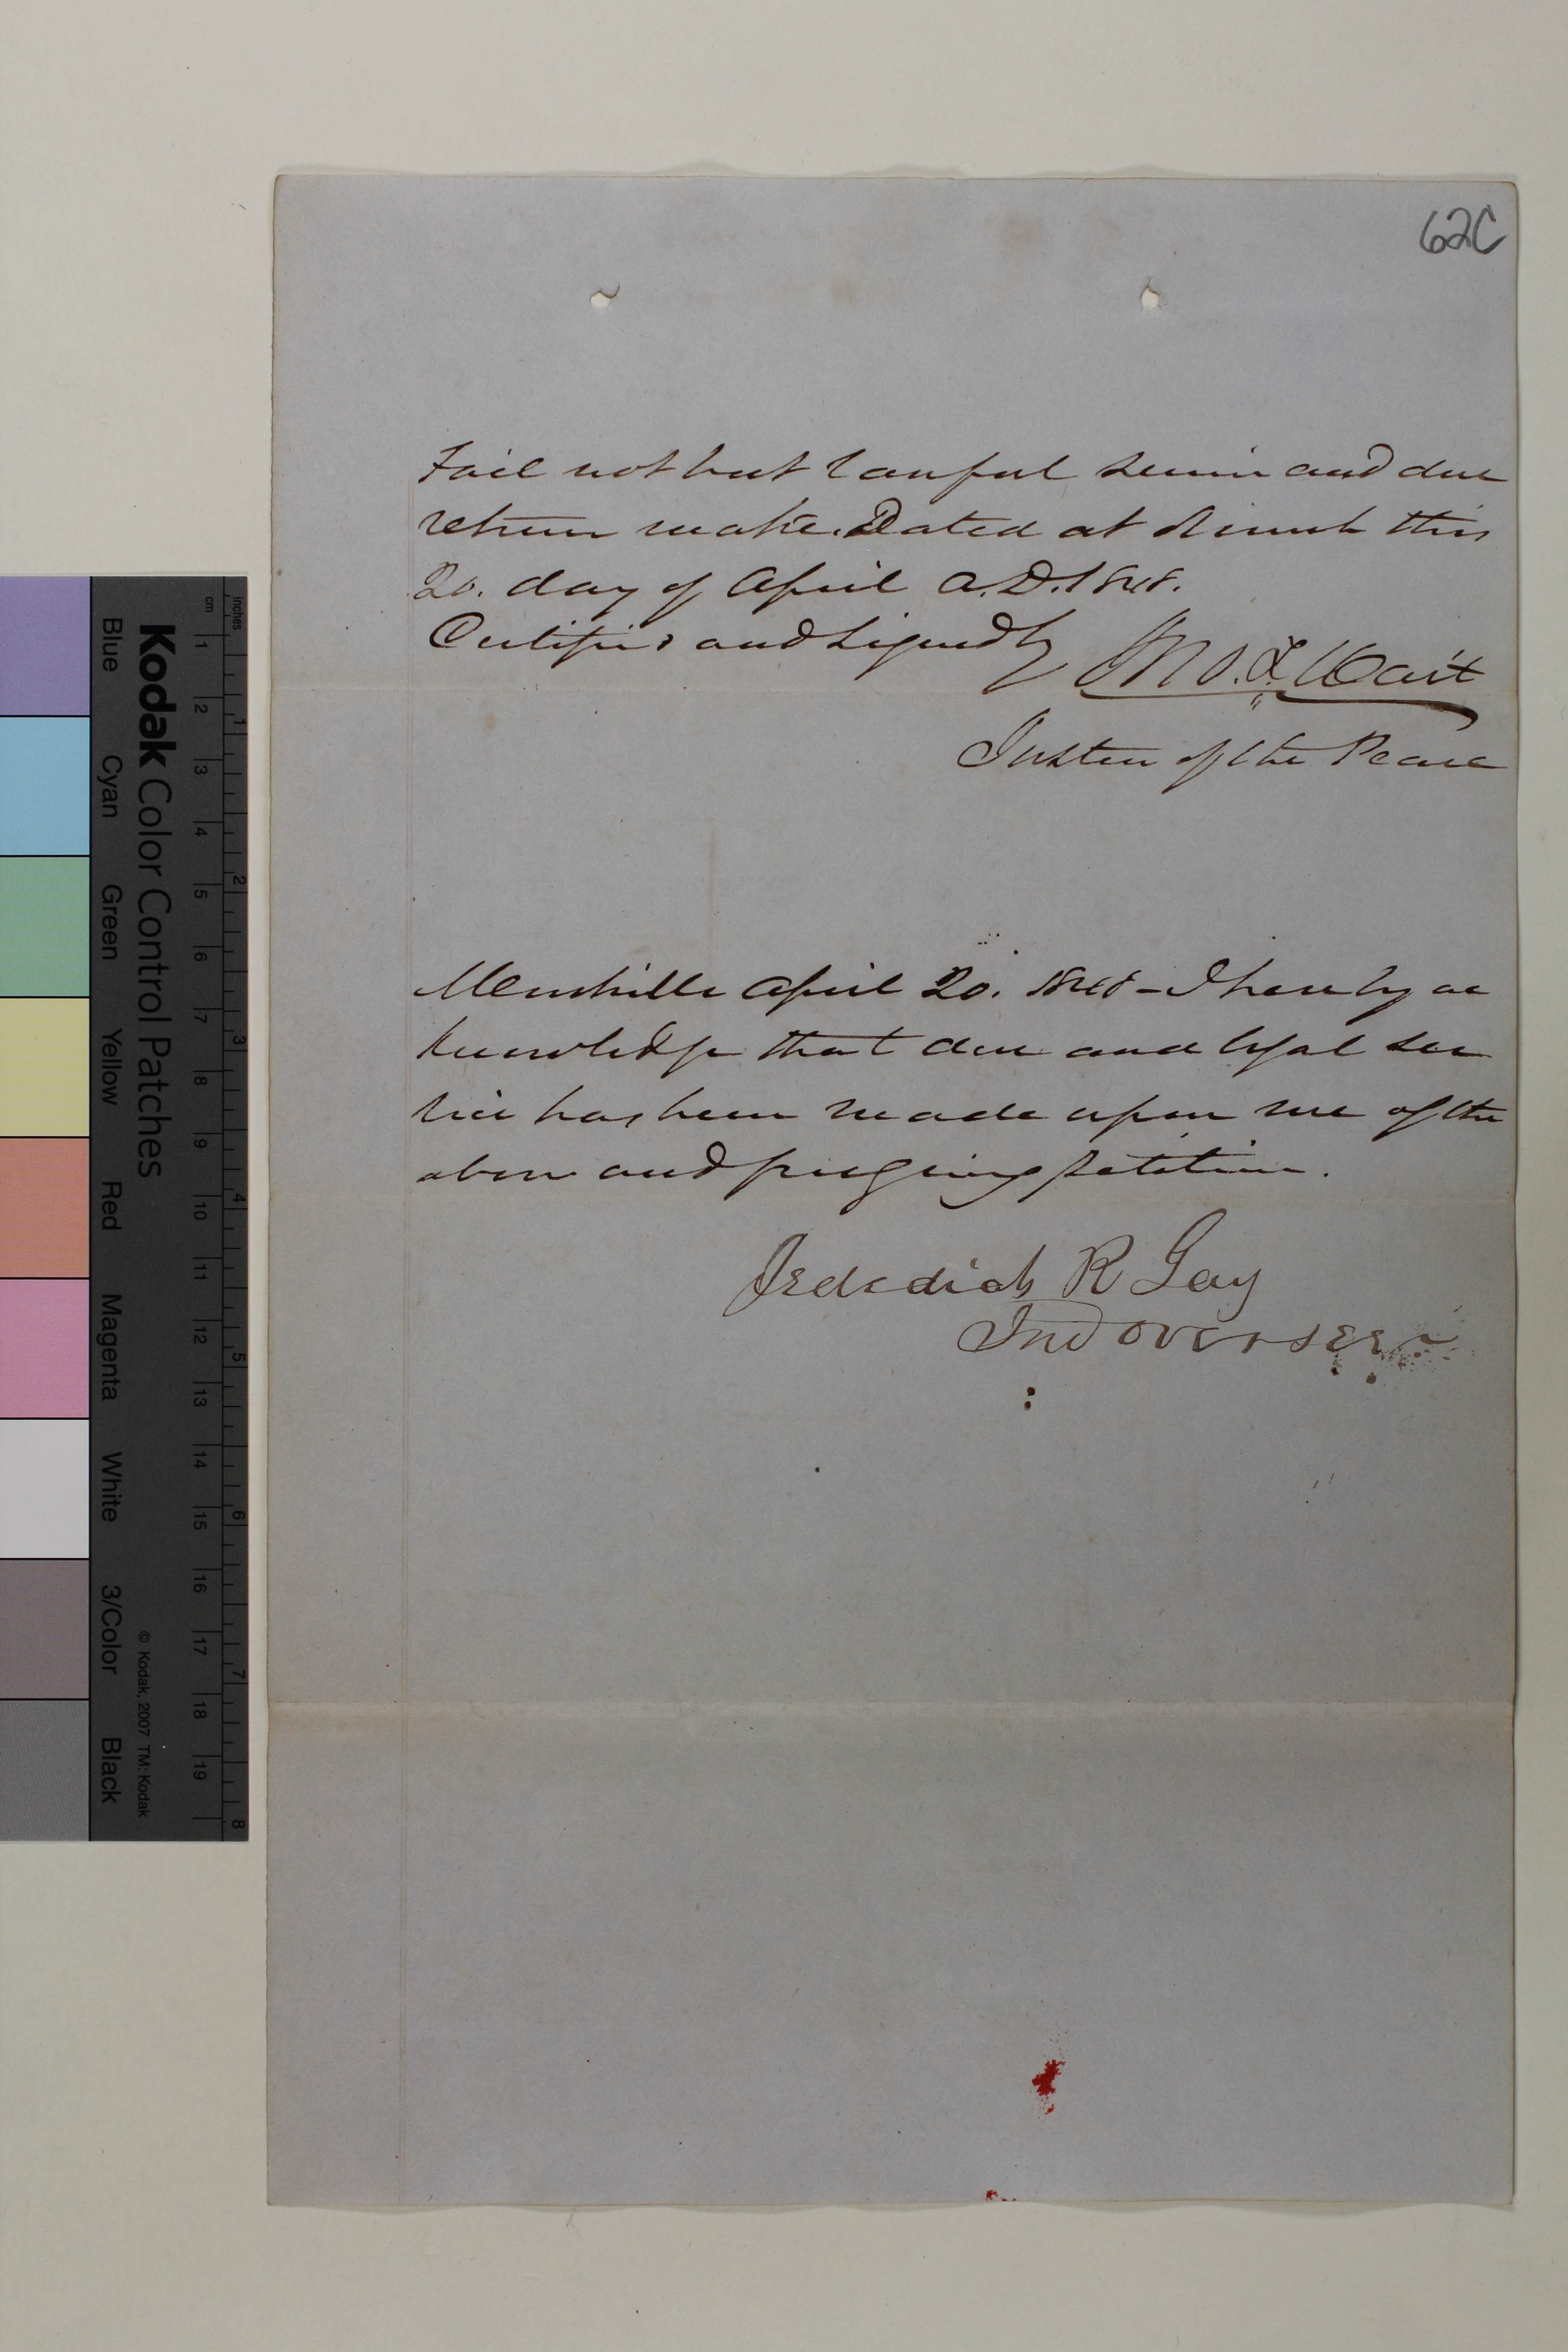 62C
Fail not but lawful service and due
return make. Dated at Norwich this
20. day of April A.D. 1848.
Certified and signed by Jno. T. Wait
Justice of the Peace
Montville April 20. 1848 - I hereby ac
knowledge that due and legal ser
vice has been made upon me of the
above and foregoing petition.
Jedediah R Gay
Ind Overseer
Kodak Color Control Patches
Blue Cyan Green Yellow Red Magenta White 3/Color Black
© Kodak, 2007 TM: Kodak
cm 1 2 3 4 5 6 7 8 9 10 11 12 13 14 15 16 17 18 19
inches 1 2 3 4 5 6 7 8